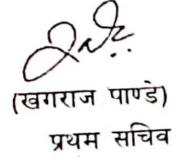 (खगराज पाण्डे)
प्रथम सचिव